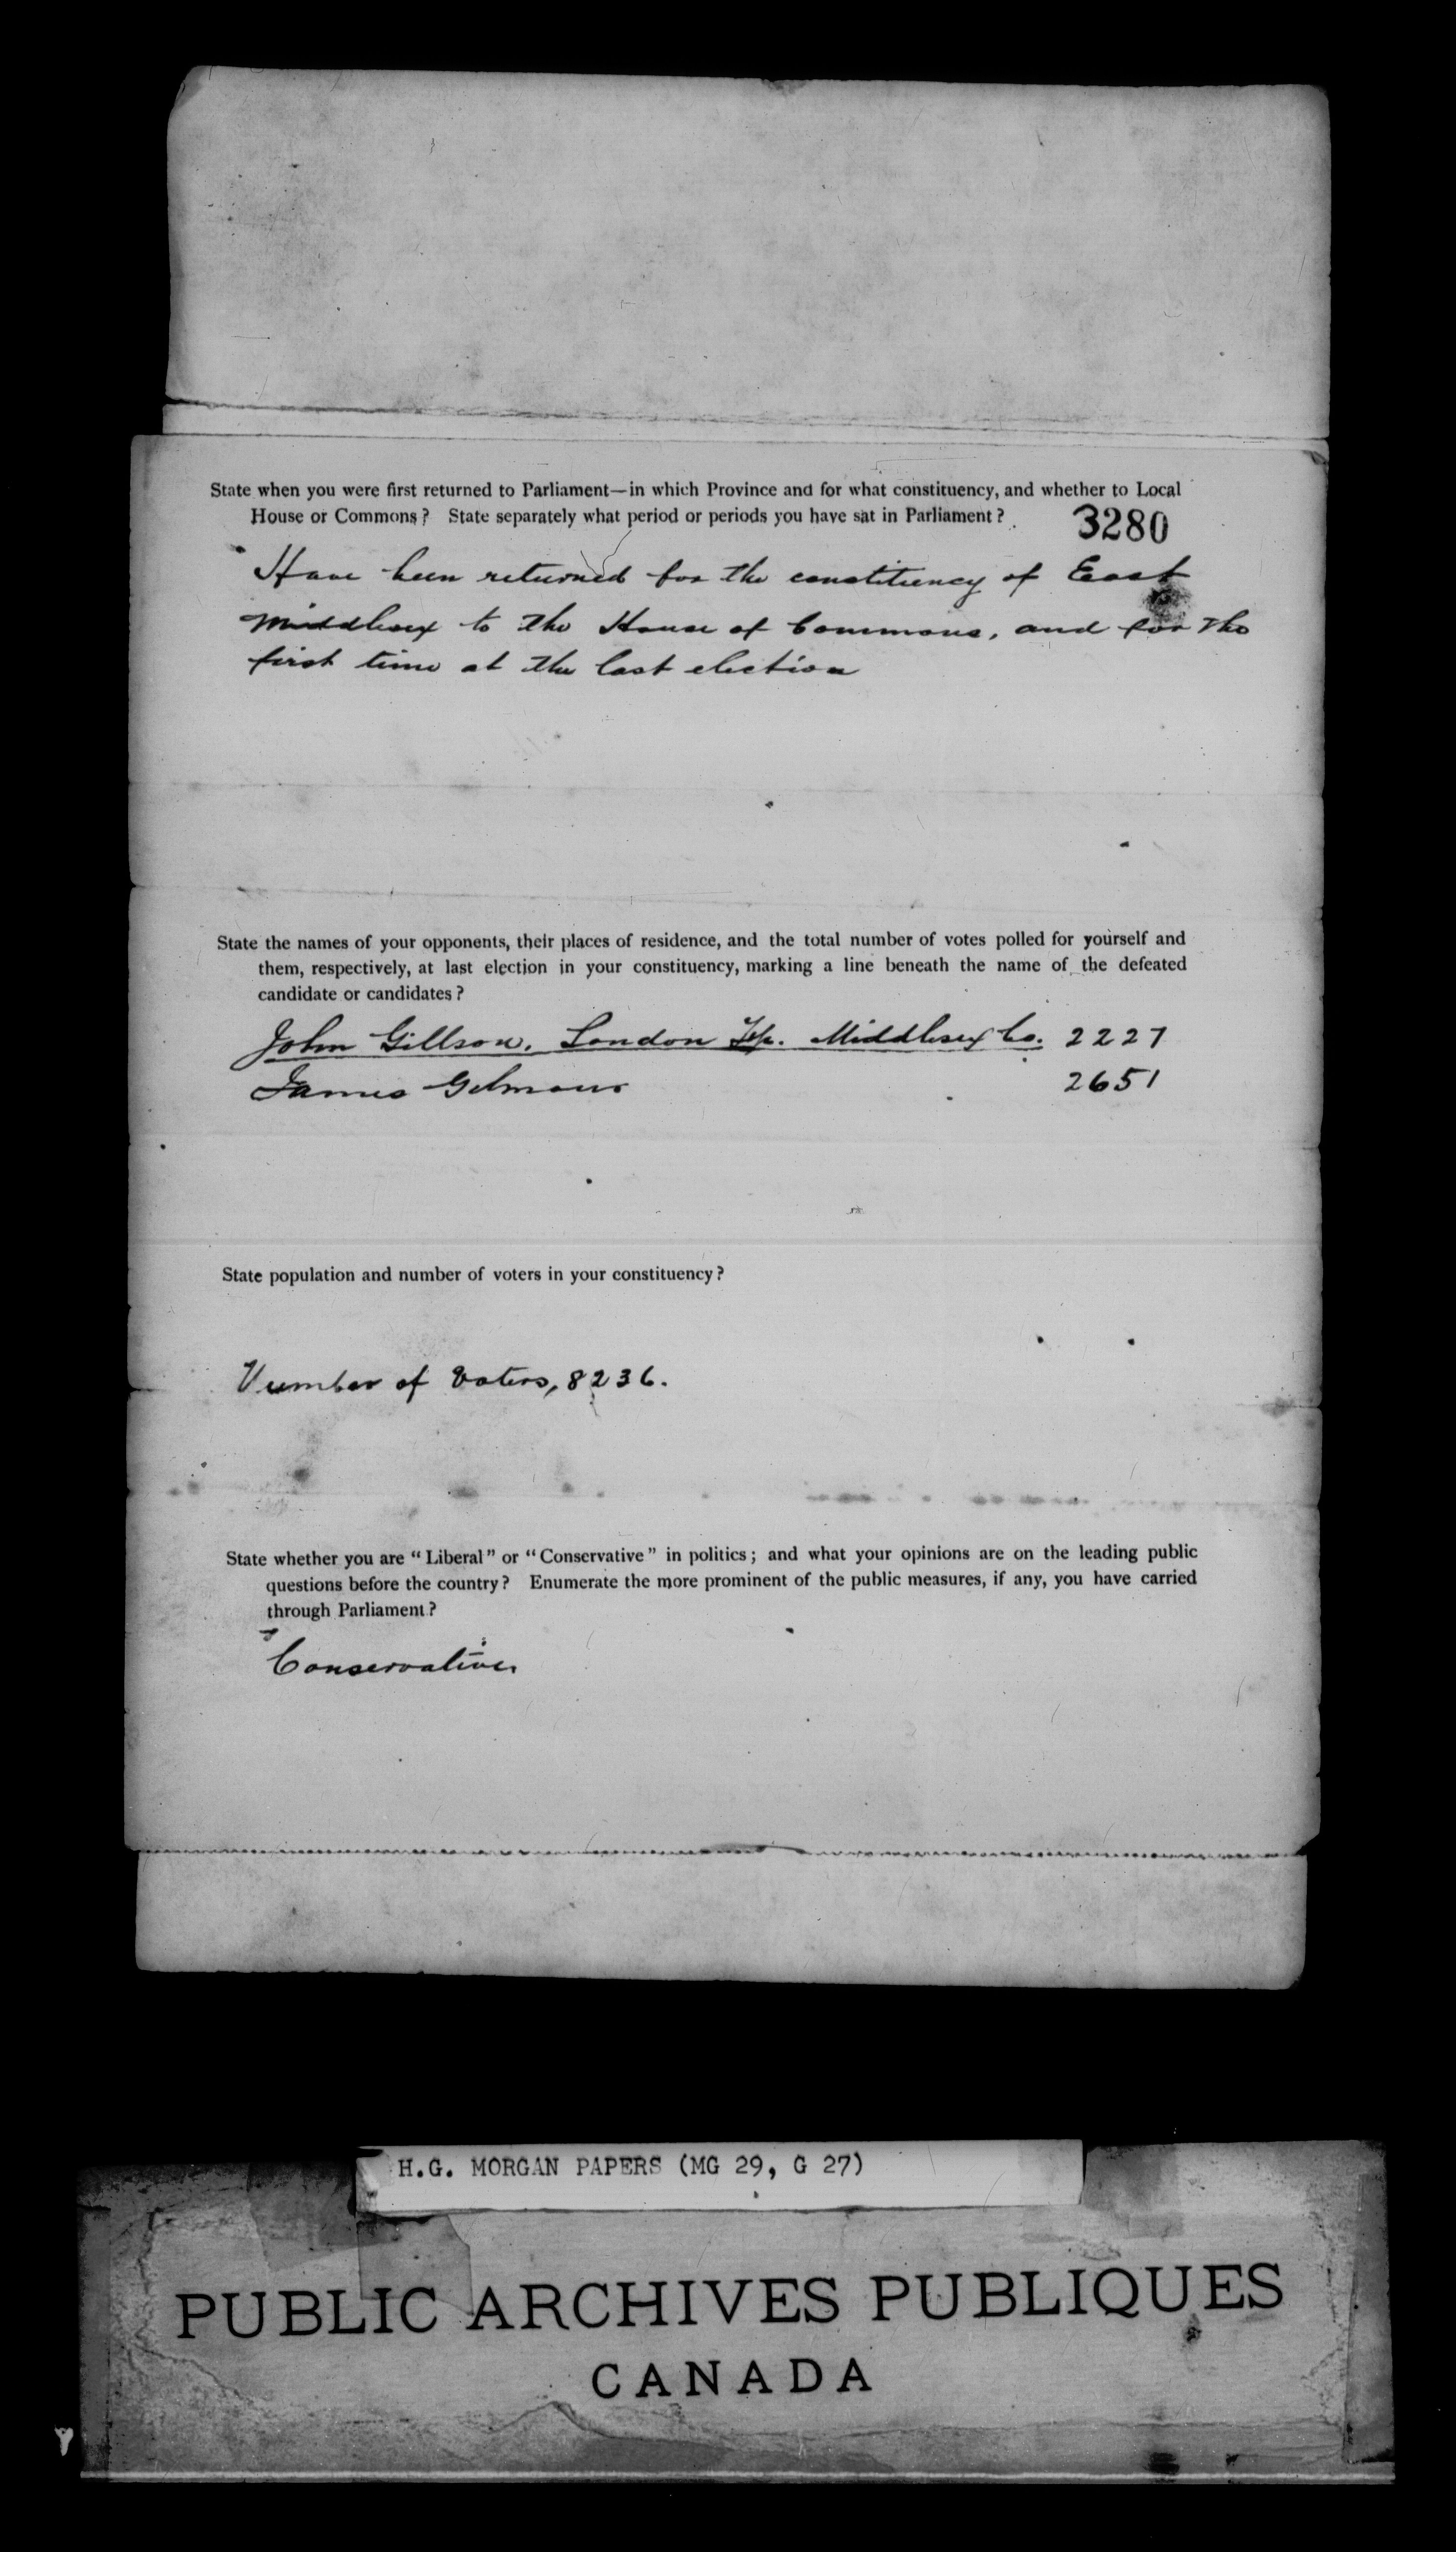 State when you were first returned to Parliament—in which Province and for what constituency, and whether to Local
House or Commons? State separately what period or periods you have sat in Parliament?
3280
Have been returned for the constituency of East
Middlesex to the House of Commons, and for the
first time at the last election
State the names of your opponents, their places of residence, and the total number of votes polled for yourself and
them, respectively, at last election in your constituency, marking a line beneath the name of the defeated
candidate or candidates?
John Gillson, London Tp. Middlesex Co. 2227
James Gilmour 2651
State population and number of voters in your constituency?
Number of Voters, 8236.
State whether you are "Liberal" or "Conservative" in politics; and what your opinions are on the leading public
questions before the country? Enumerate the more prominent of the public measures, if any, you have carried
through Parliament?
Conservative
H.G. MORGAN PAPERS (MG 29, G 27)
PUBLIC ARCHIVES PUBLIQUES
CANADA